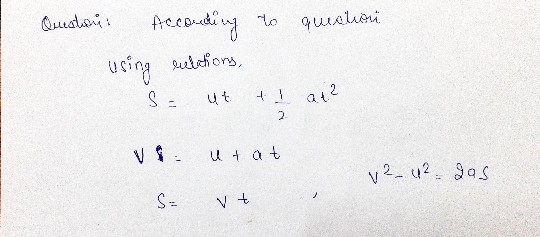 Question: According to question
using relations,
S = ut + 1/2 at²
V = u + at
S = vt , v² - u² = 2as